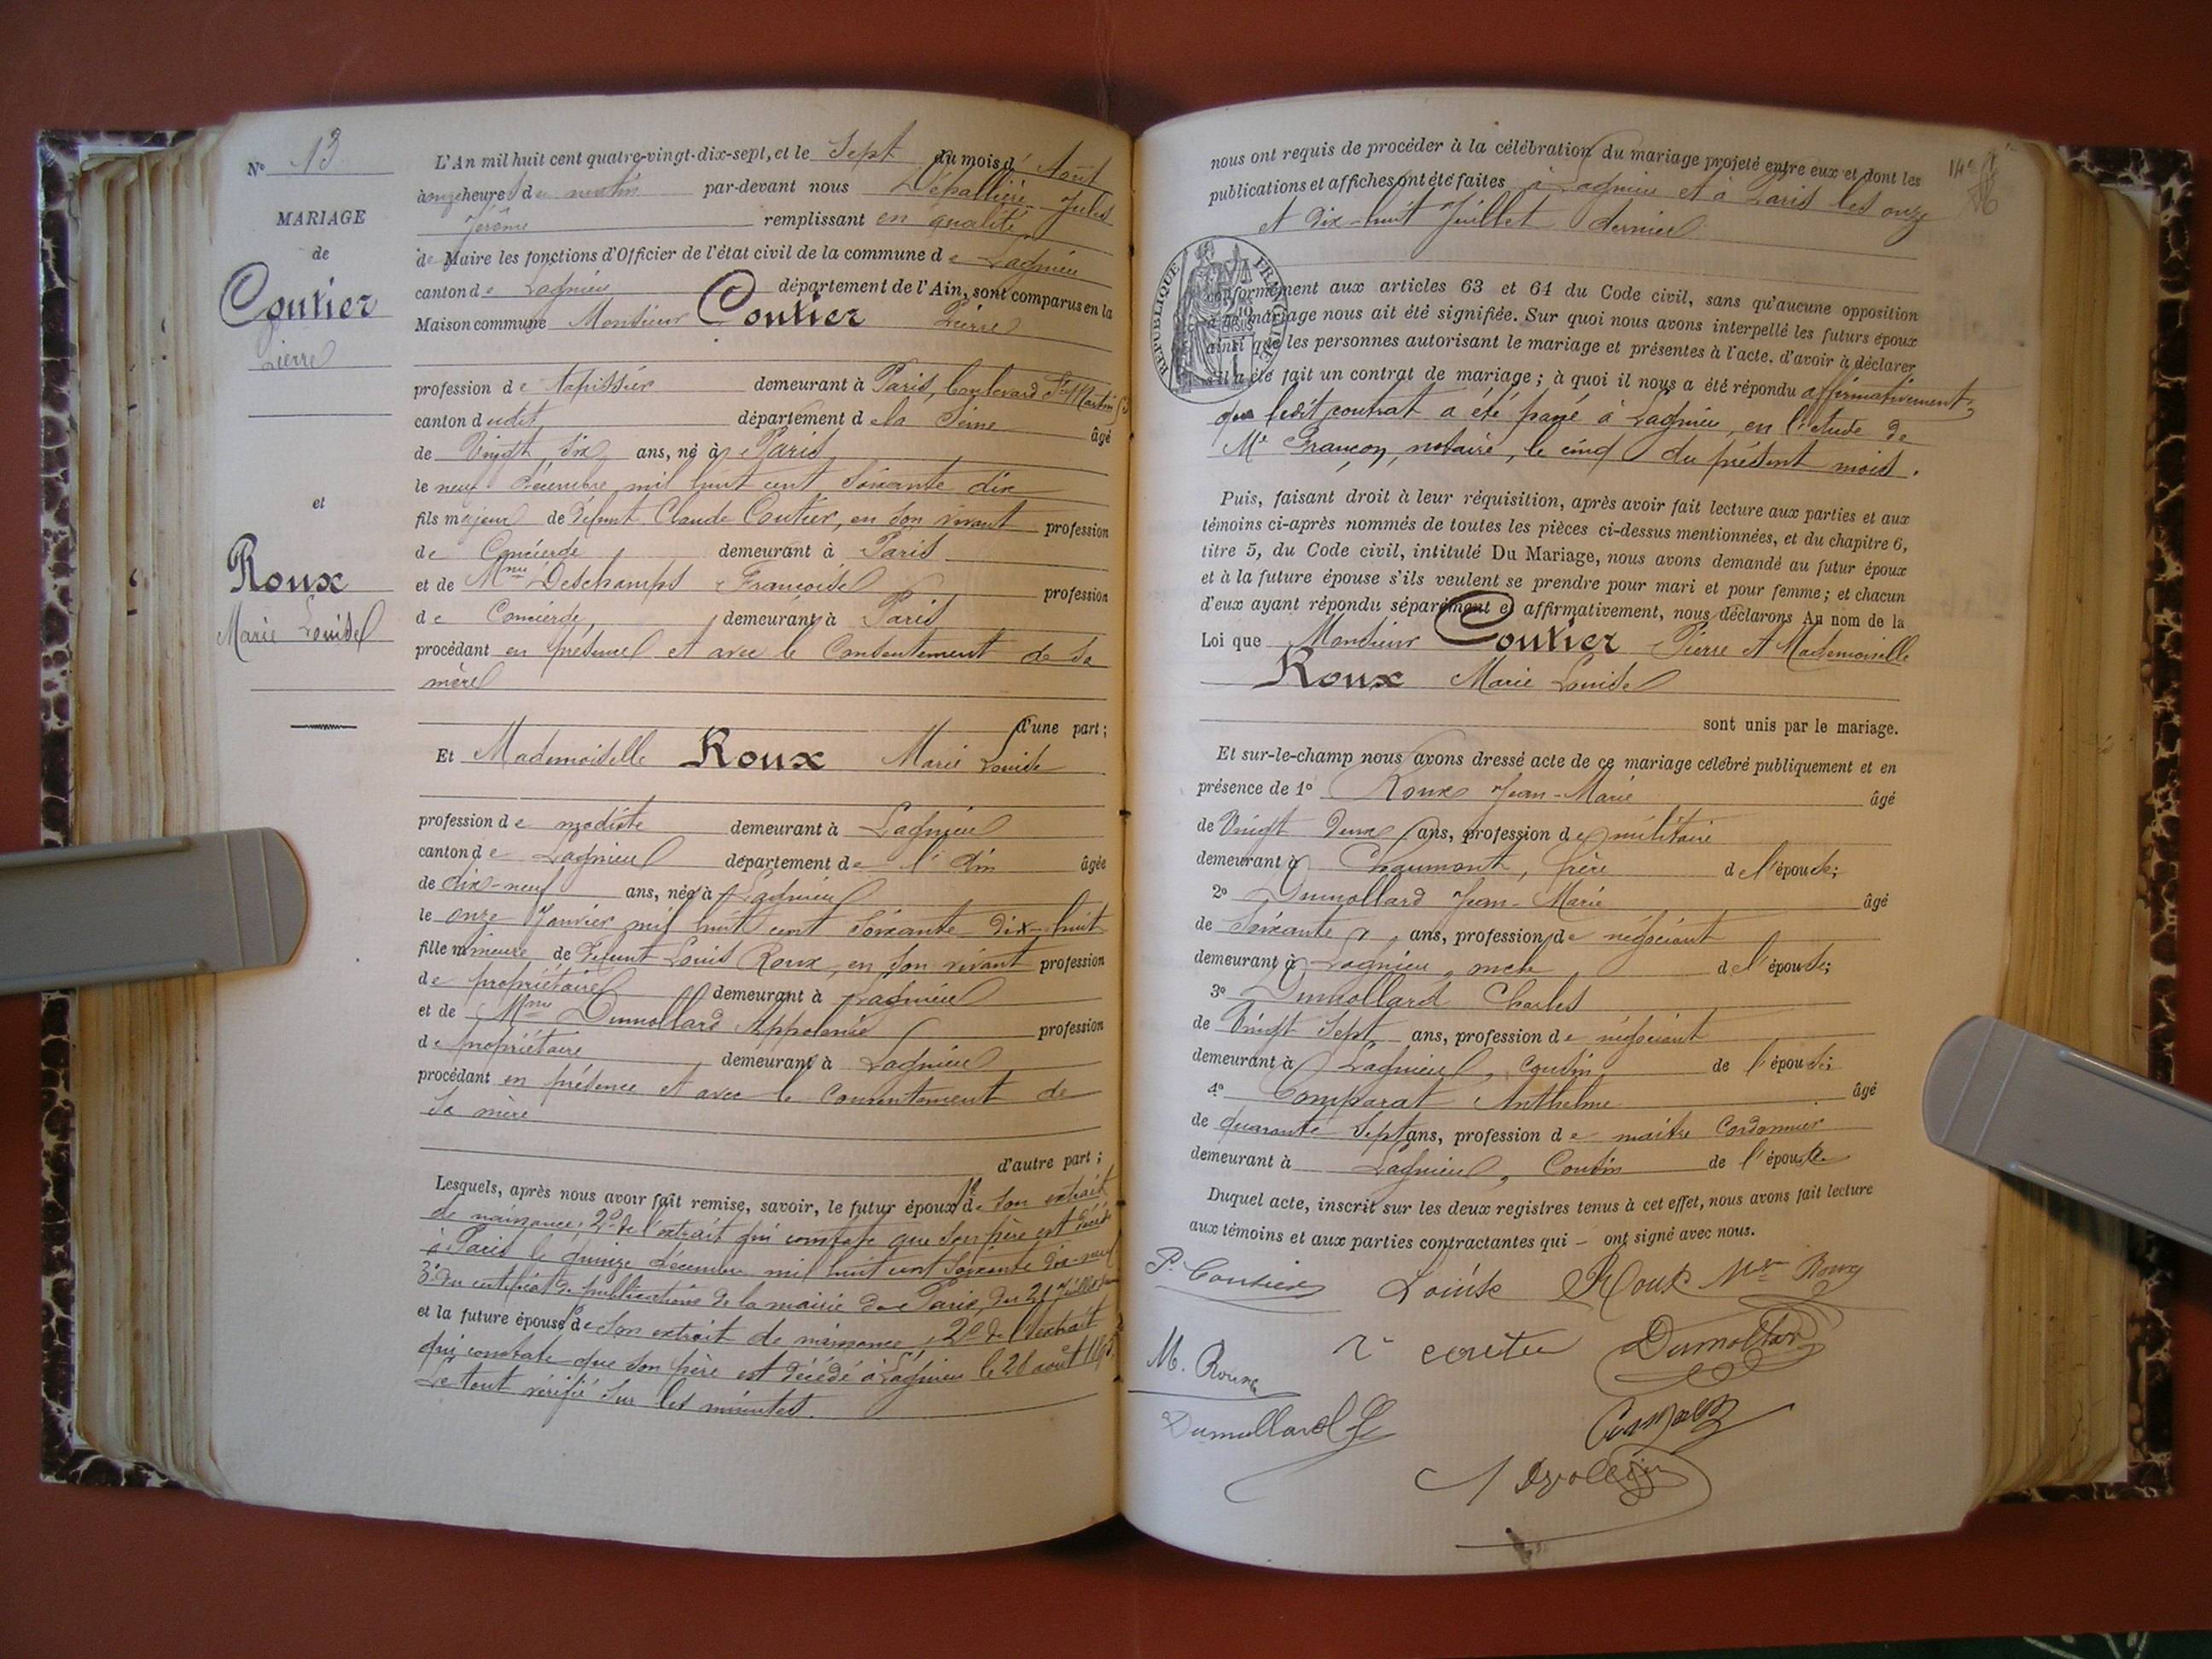 N° 13
MARIAGE
de
Coutier
Pierre
et
Roux
Marie Louise
L'An mil huit cent quatre-vingt-dix-sept, et le Sept du mois d' Août
à onze heures du matin par-devant nous Dépallière Jules
Jérôme remplissant en qualité
de Maire les fonctions d'Officier de l'état civil de la commune de Lagnieu
canton de Lagnieu département de l'Ain, sont comparus en la
Maison commune Monsieur Coutier Pierre
profession de tapissier demeurant à Paris, boulevard St Martin
canton dudit département de la Seine âgé
de Vingt six ans, né à Paris
le neuf Décembre mil huit cent soixante dix
fils majeur de défunt Claude Coutier, en son vivant profession
de Concierge demeurant à Paris
et de Mme Deschamps Françoise profession
de Concierge, demeurant à Paris
procédant en présence et avec le Consentement de sa
mère
d'une part;
Et Mademoiselle Roux Marie Louise
profession de modiste demeurant à Lagnieu
canton de Lagnieu département de l'Ain âgée
de dix-neuf ans, née à Lagnieu
le onze Janvier mil huit cent soixante-dix-huit
fille mineure de défunt Louis Roux, en son vivant profession
de propriétaire demeurant à Lagnieu
et de Mme Dumollard Appolonie profession
de propriétaire demeurant à Lagnieu
procédant en présence et avec le Consentement de
sa mère
d'autre part;
Lesquels, après nous avoir fait remise, savoir, le futur époux 1° de son extrait
de naissance; 2° de l'extrait qui constate que son père est décédé
à Paris le quinze décembre mil huit cent soixante dix-neuf
3° du certificat de publications de la mairie de Paris, du 21 Juillet
et la future épouse 1° de son extrait de naissance, 2° de l'extrait
qui constate que son père est décédé à Lagnieu le 28 août
Le tout vérifié sur les minutes.
nous ont requis de procéder à la célébration du mariage projeté entre eux et dont les
publications et affiches ont été faites à Lagnieu et à Paris les onze
et dix-huit Juillet dernier
RÉPUBLIQUE FRANÇAISE
conformément aux articles 63 et 64 du Code civil, sans qu'aucune opposition
à ce mariage nous ait été signifiée. Sur quoi nous avons interpellé les futurs époux
ainsi que les personnes autorisant le mariage et présentes à l'acte, d'avoir à déclarer
s'il a été fait un contrat de mariage; à quoi il nous a été répondu affirmativement,
que ledit contrat a été passé à Lagnieu, en l'étude de
Me Françon, notaire, le cinq du présent mois.
Puis, faisant droit à leur réquisition, après avoir fait lecture aux parties et aux
témoins ci-après nommés de toutes les pièces ci-dessus mentionnées, et du chapitre 6,
titre 5, du Code civil, intitulé Du Mariage, nous avons demandé au futur époux
et à la future épouse s'ils veulent se prendre pour mari et pour femme; et chacun
d'eux ayant répondu séparément et affirmativement, nous déclarons Au nom de la
Loi que Monsieur Coutier Pierre et Mademoiselle
Roux Marie Louise
sont unis par le mariage.
Et sur-le-champ nous avons dressé acte de ce mariage célébré publiquement et en
présence de 1° Roux Jean-Marie âgé
de Vingt deux ans, profession de militaire
demeurant à Chaumont, frère de l'épouse;
2° Dumollard Jean-Marie âgé
de Soixante ans, profession de négociant
demeurant à Lagnieu, oncle de l'épouse;
3° Dumollard Charles
de Vingt Sept ans, profession de négociant
demeurant à Lagnieu, Cousin de l'épouse;
4° Comparat Anthelme âgé
de quarante Sept ans, profession de maître Cordonnier
demeurant à Lagnieu, Cousin de l'épouse
Duquel acte, inscrit sur les deux registres tenus à cet effet, nous avons fait lecture
aux témoins et aux parties contractantes qui - ont signé avec nous.
P. Coutier Louise Roux Roux
M. Roux Dumollard
Dumollard